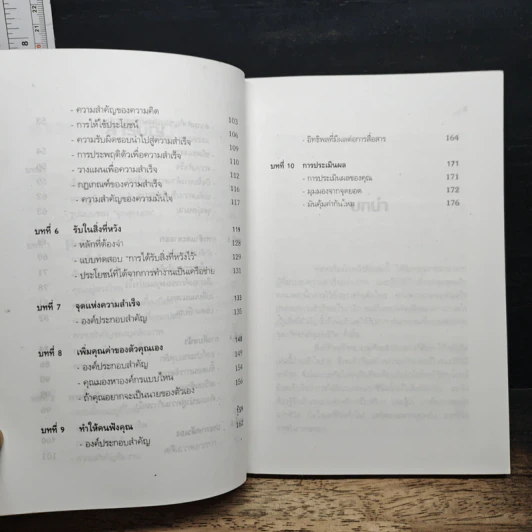 - ความสำคัญของความคิด 103
- การให้ใช้ประโยชน์ 106
- ความรับผิดชอบนำไปสู่ความสำเร็จ 109
- การประพฤติตัวเพื่อความสำเร็จ 110
- วางแผนเพื่อความสำเร็จ 112
- กฎเกณฑ์ของความสำเร็จ 116
- ความสำคัญของความมั่นใจ 117
บทที่ 6 รับในสิ่งที่หวัง 119
- หลักที่ต้องจำ 128
- แบบทดสอบ "การได้รับสิ่งที่หวังไว้" 129
- ประโยชน์ที่ได้จากการทำงานเป็นเครือข่าย 131
บทที่ 7 จุดแห่งความสำเร็จ
- องค์ประกอบสำคัญ 135
บทที่ 8 เพิ่มคุณค่าของตัวคุณเอง
- องค์ประกอบสำคัญ
- คุณมองหาองค์กรแบบไหน
- ถ้าคุณอยากจะเป็นนายของตัวเอง
บทที่ 9 ทำให้คนฟังคุณ
- องค์ประกอบสำคัญ
- อิทธิพลที่มีผลต่อการสื่อสาร 164
บทที่ 10 การประเมินผล 171
- การประเมินผลของคุณ 171
- มุมมองจากจุดยอด 172
- มันคุ้มค่ากันไหม 176